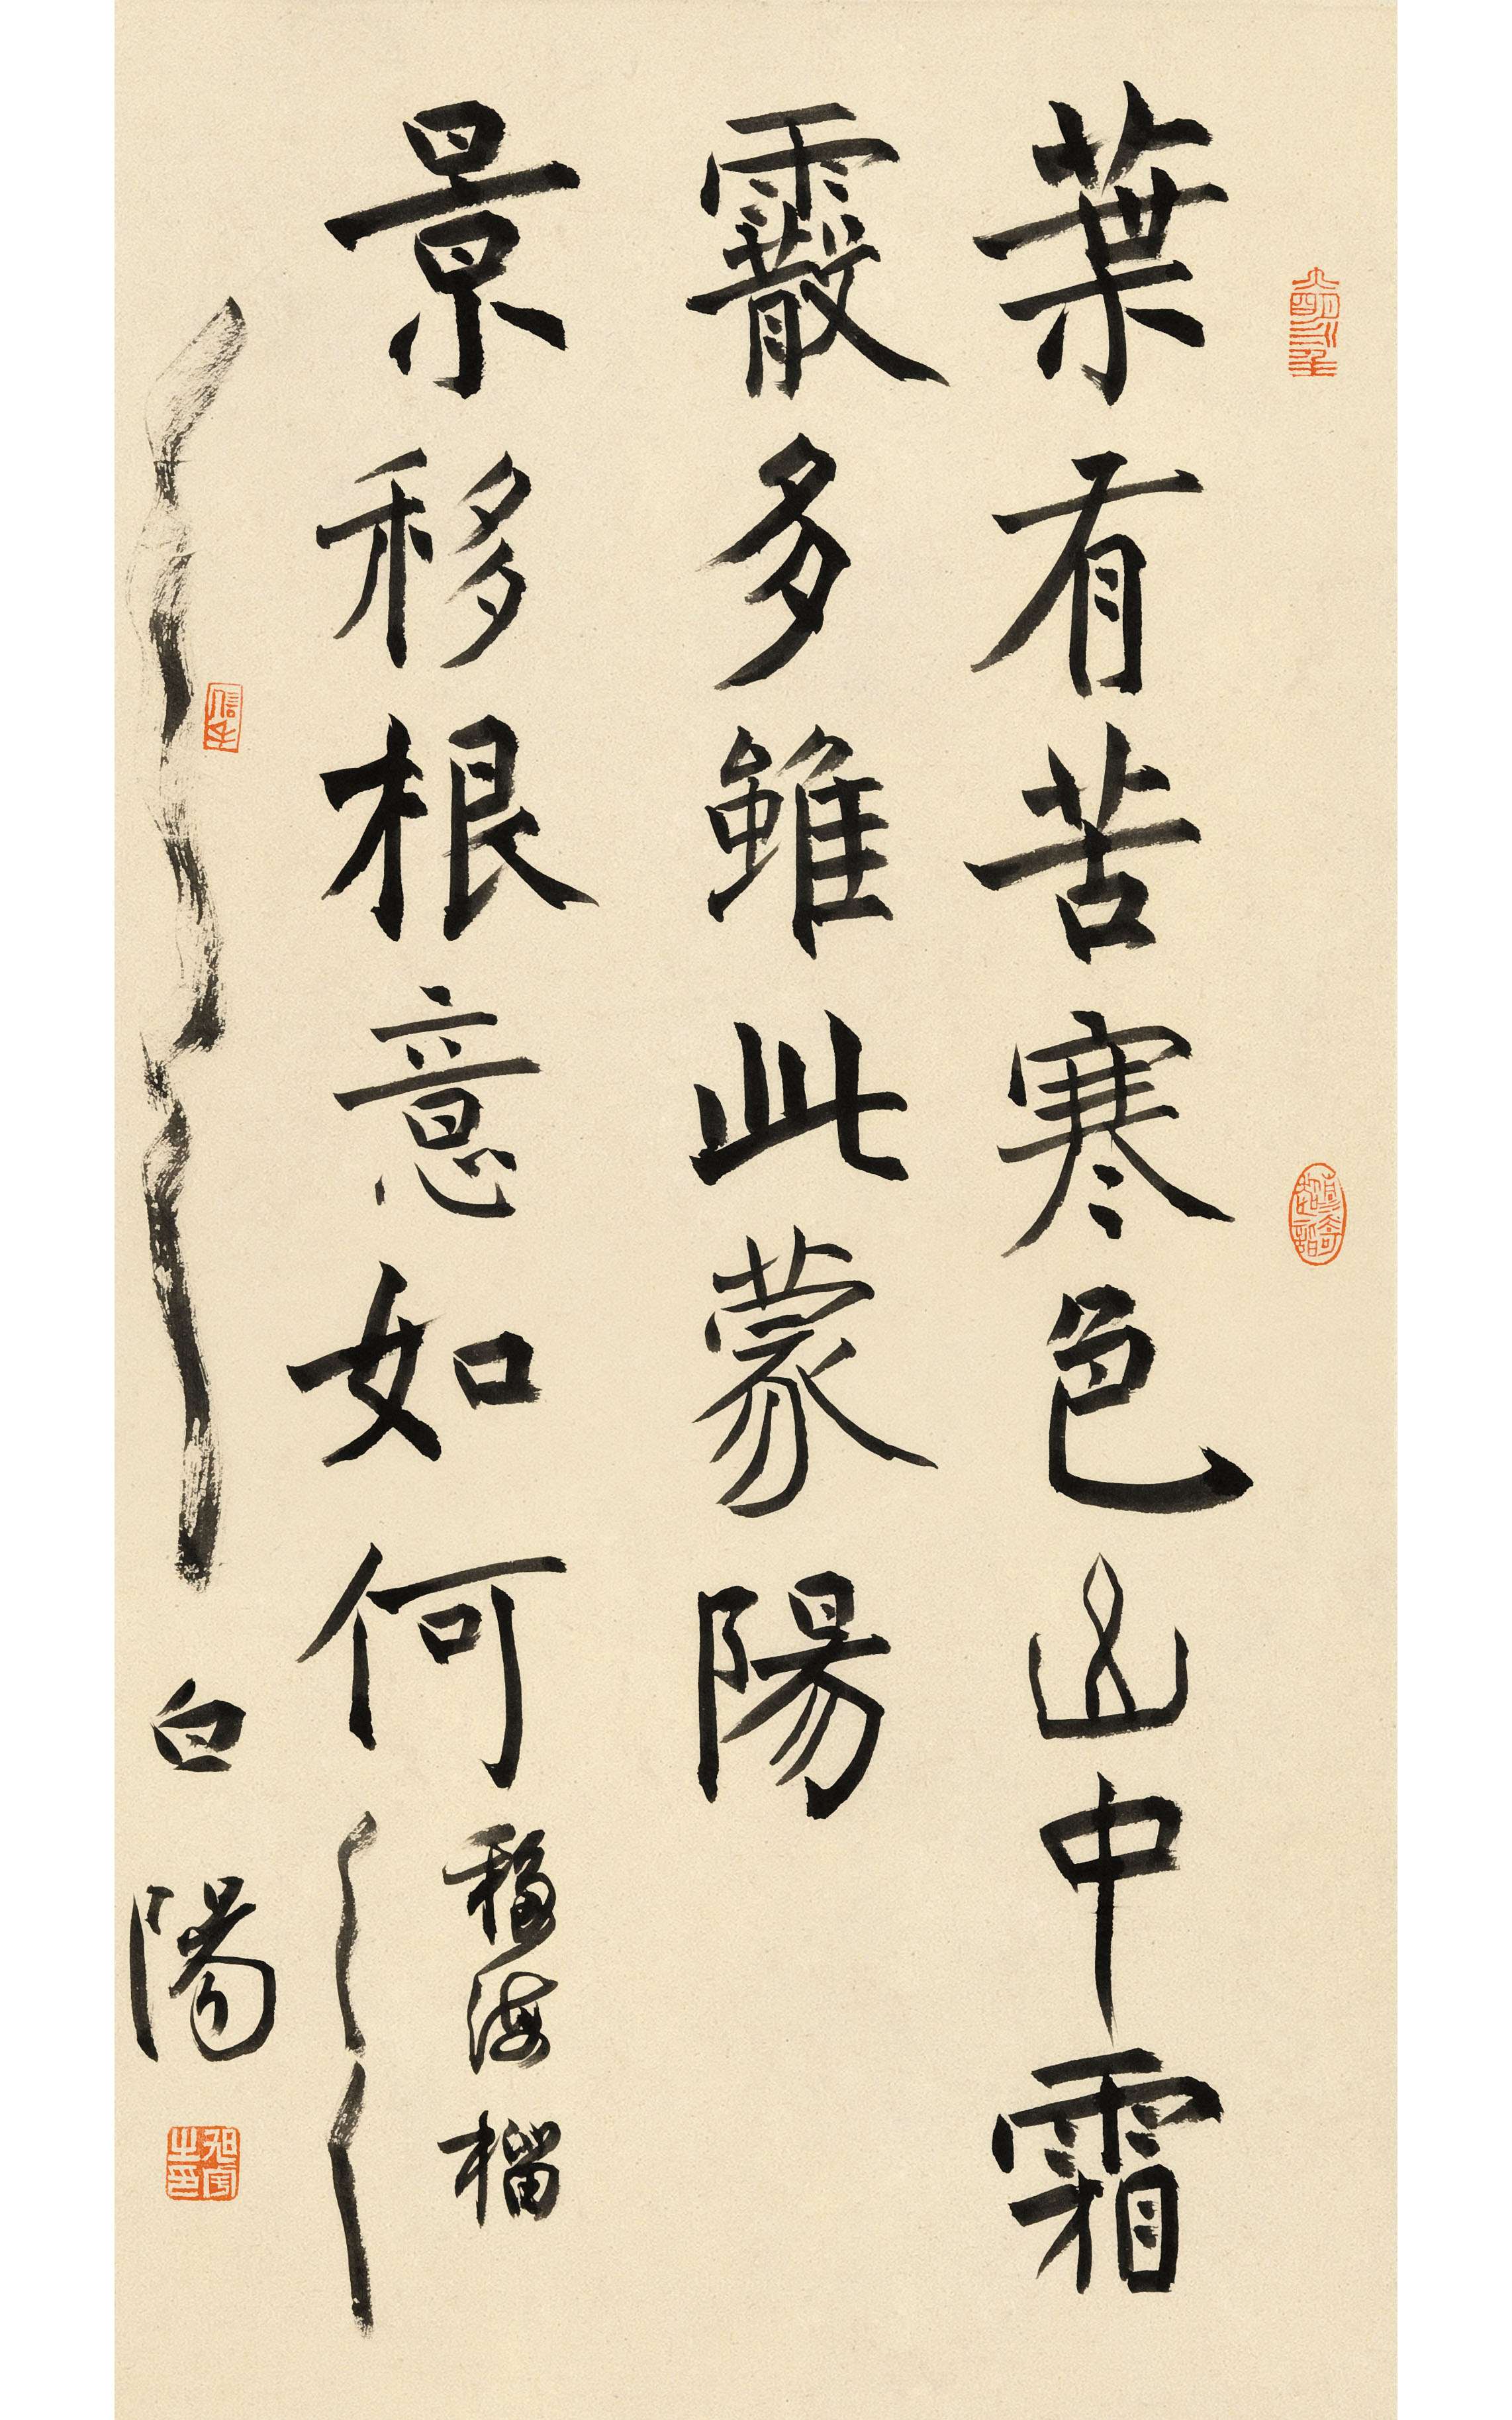 葉有苦寒色山中霜
霰多雖此蒙陽
景移根意如何
移海榴
白陽